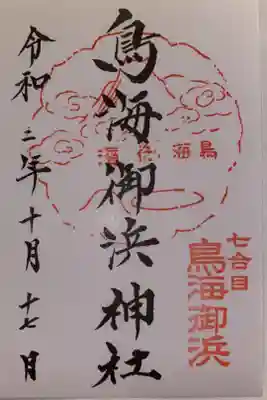 七合目
鳥海御浜
鳥海御浜神社
令和二年十月十七日